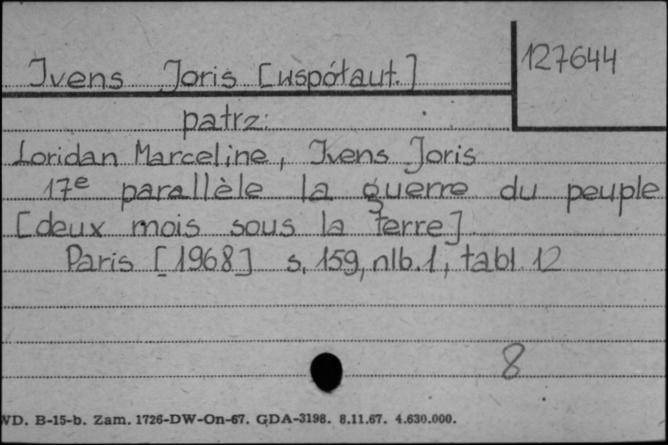 127644
Ivens Joris [współaut.]
patrz:
Loridan Marceline, Ivens Joris
17e parallèle la guerre du peuple
[deux mois sous la terre]
Paris [1968] s. 159, nlb. 1, tabl. 12
8
WD. B-15-b. Zam. 1726-DW-On-67. GDA-3198. 8.11.67. 4.630.000.